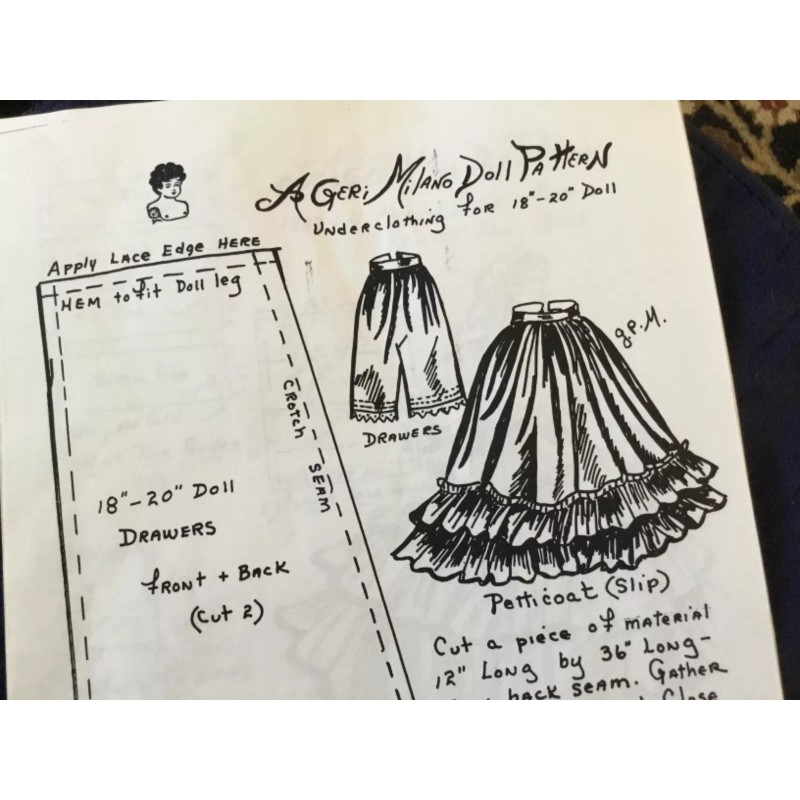 A Geri Milano Doll Pattern
Underclothing for 18"-20" Doll
Apply Lace Edge HERE
HEM to fit Doll leg
CROTCH SEAM
18"-20" Doll
DRAWERS
front + Back
(Cut 2)
DRAWERS
g.P.M.
Petticoat (Slip)
Cut a piece of material
12" Long by 36" Long-
back seam. Gather
Close